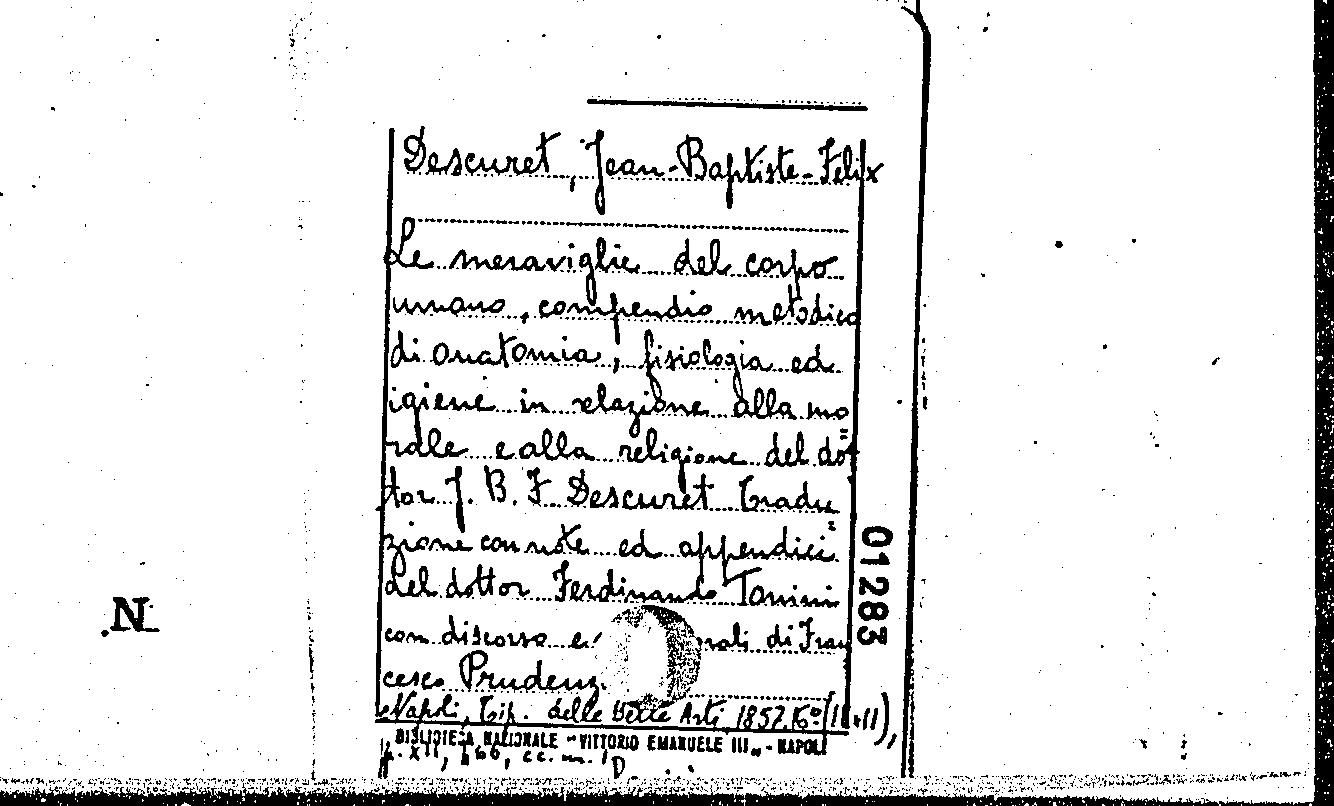 Descuret, Jean-Baptiste-Félix
Le meraviglie del corpo
umano, compendio metodico
di anatomia, fisiologia ed
igiene in relazione alla mo
rale e alla religione del dot
tor J. B. F Descuret Tradu
zione con note ed appendici
del dottor Ferdinando Tonini
con discorso di Fran
cesco
Napoli, Tip. delle Belle Arti, 1857. 16º (II+II),
BIBLIOTECA NAZIONALE "VITTORIO EMANUELE III" - NAPOLI
p. XII, 466, cc. m. 1
01283
N